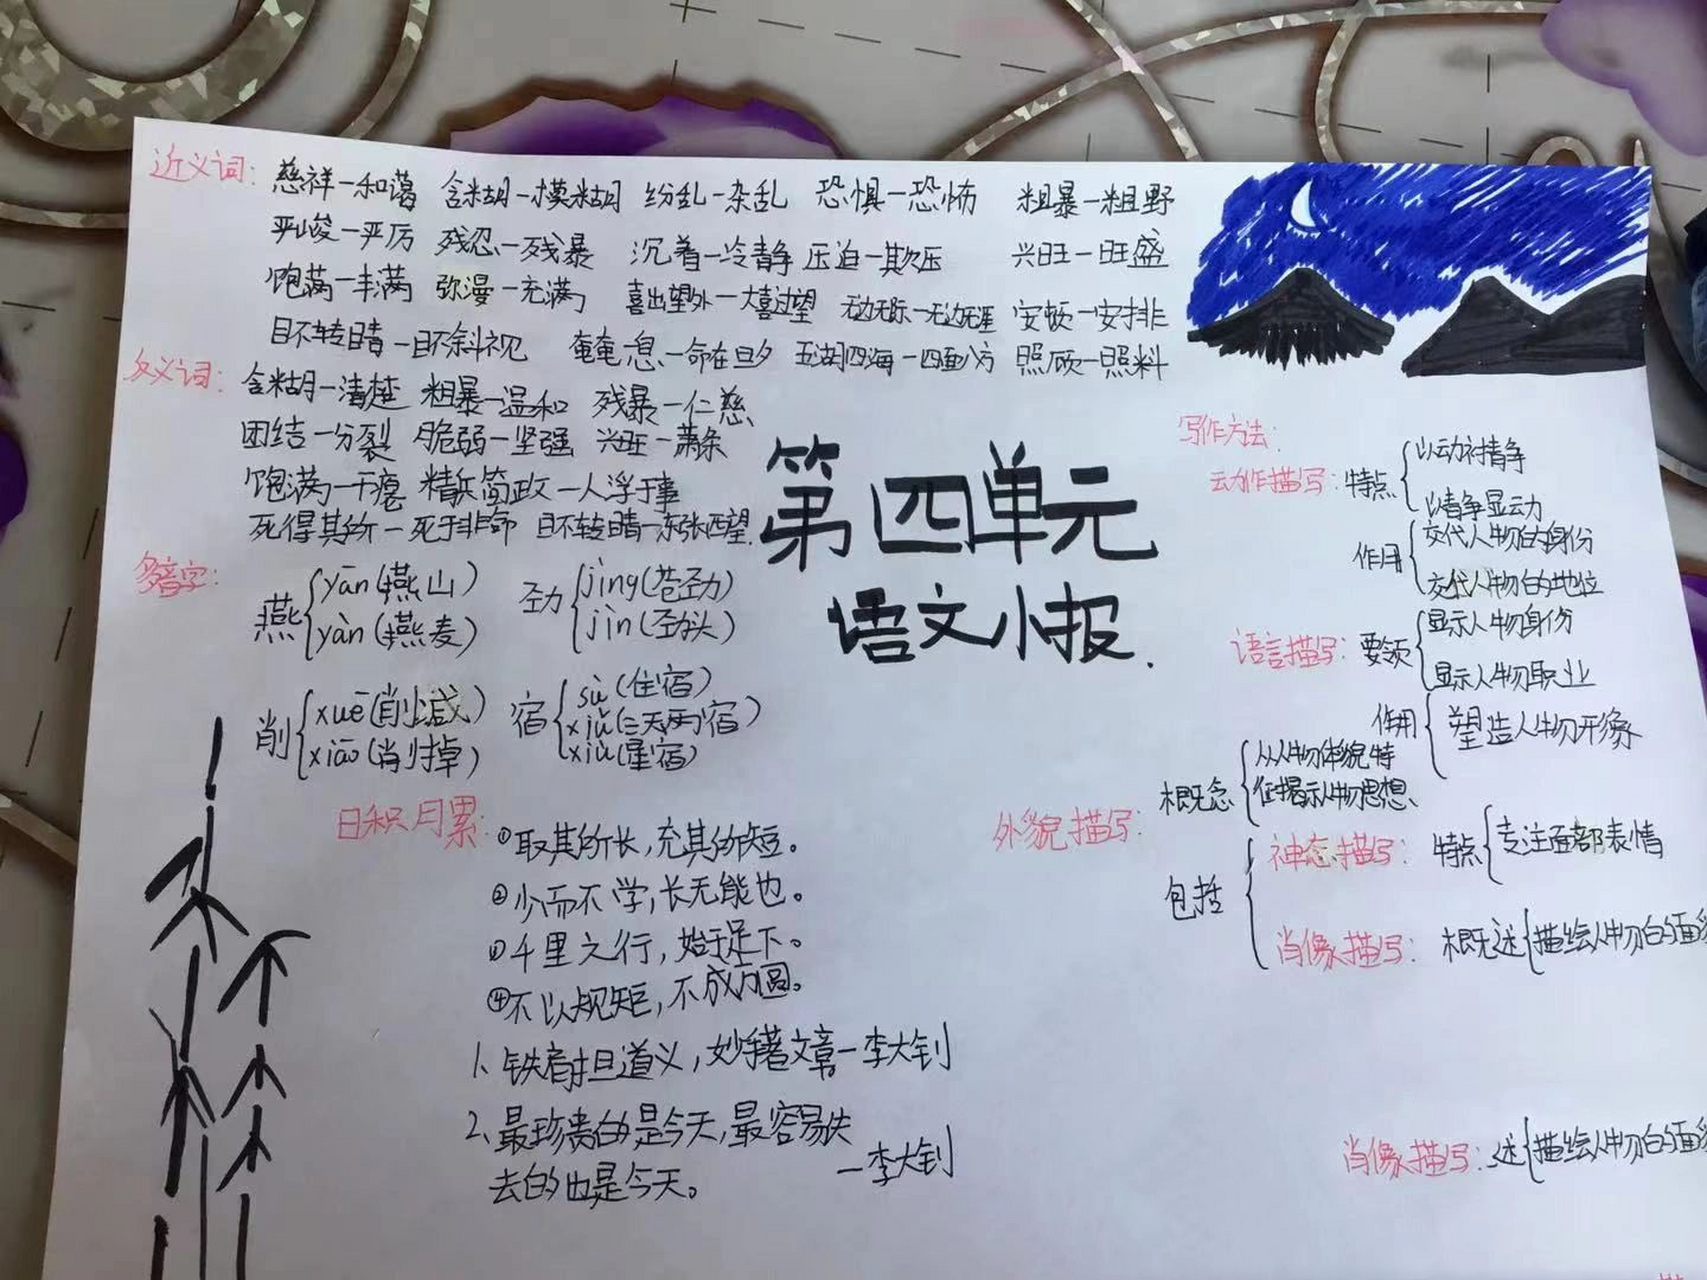 近义词: 慈祥—和蔼 含糊—模糊 纷乱—杂乱 恐惧—恐怖 粗暴—粗野
严峻—严厉 残忍—残暴 沉着—冷静 压迫—欺压 兴旺—旺盛
饱满—丰满 弥漫—充满 喜出望外—大喜过望 无边无际—无边无涯 安顿—安排
目不转睛—目不斜视 奄奄一息—命在旦夕 五湖四海—四面八方 照顾—照料
反义词: 含糊—清楚 粗暴—温和 残暴—仁慈
团结—分裂 脆弱—坚强 兴旺—萧条
饱满—干瘪 精兵简政—人浮于事
死得其所—死于非命 目不转睛—东张西望
第四单元
语文小报.
多音字:
燕 yān(燕山) yàn(燕麦)
劲 jìng(苍劲) jìn(劲头)
削 xuē(削减) xiāo(削掉)
宿 sù(住宿) xiǔ(三天两宿) xiù(星宿)
日积月累:
①取其所长,充其所短。
②少而不学,长无能也。
③千里之行,始于足下。
④不以规矩,不成方圆。
1、铁肩担道义,妙手著文章—李大钊
2、最珍贵的是今天,最容易失
去的也是今天。—李大钊
写作方法:
动作描写: 特点 以动衬静
以静显动
作用 交代人物的身份
交代人物的地位
语言描写: 要领 显示人物身份
显示人物职业
作用 塑造人物形象
外貌描写: 概念 从人物体貌特
征揭示人物思想、
包括 神态描写: 特点 专注面部表情
肖像描写: 概述 描绘人物的面貌
肖像描写: 述 描绘人物的面貌